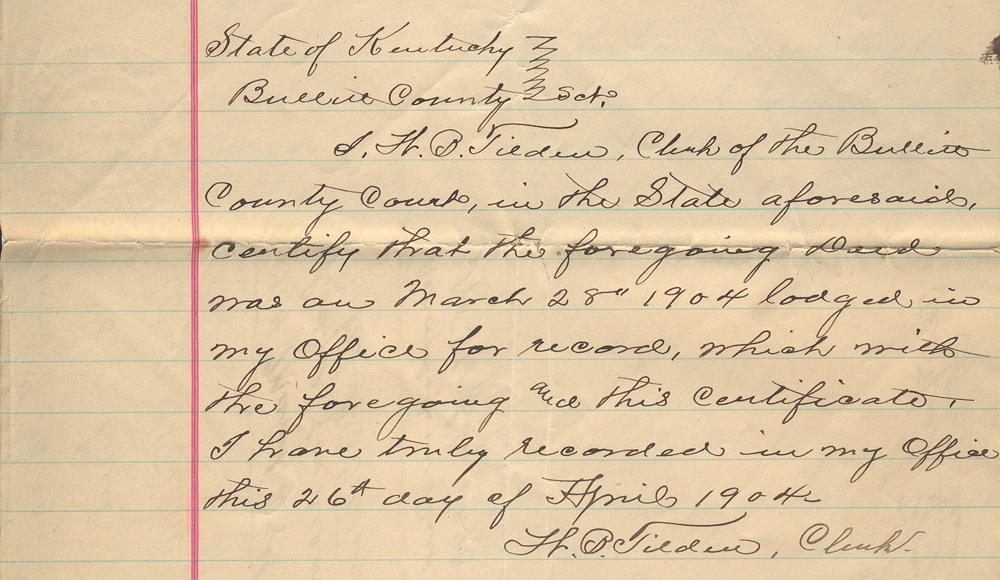 State of Kentucky
Bullitt County Sct.
I, H. B. Tilden, Clerk of the Bullitt
County Court, in the State aforesaid,
certify that the foregoing Deed
was on March 28" 1904 lodged in
my Office for record, which with
the foregoing and this certificate,
I have truly recorded in my Office
this 26th day of April 1904
H. B. Tilden, Clerk.